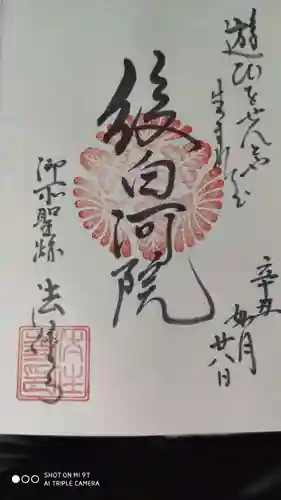 遊びをせんとや
生まれけむ
後白河院
辛丑
如月
廿八日
御所聖跡
法住寺
SHOT ON MI 9T
AI TRIPLE CAMERA